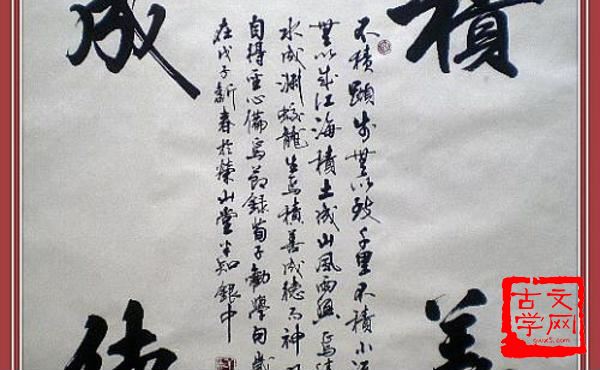 積善
成德
不積蹞步無以致千里不積小流
無以成江海積土成山風雨興焉積
水成渊蛟龍生焉積善成德而神明
自得聖心備焉節錄荀子勸學句歲
在戊子新春於榮山堂半知銀中
古文
学网